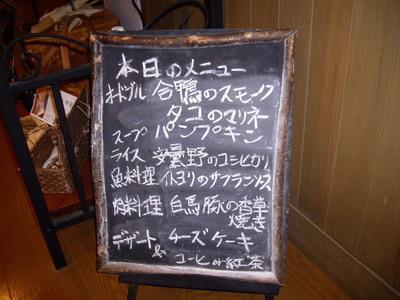 本日のメニュー
オードブル 合鴨のスモーク
タコのマリネ
スープ パンプキン
ライス 安曇野のコシヒカリ
魚料理 イトヨリのサフランソース
肉料理 白馬豚の香草
焼き
デザート チーズケーキ
& コーヒー or 紅茶